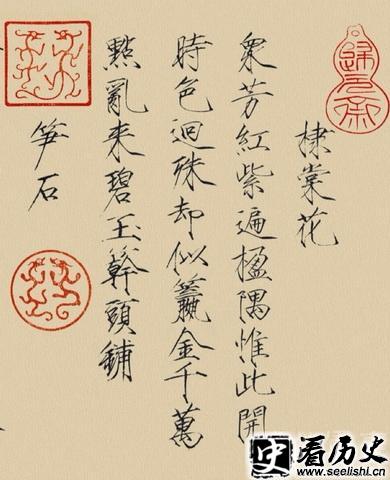 棣棠花
衆芳紅紫遍楹隅惟此開
時色迥殊却似籯金千萬
點亂来碧玉幹頭鋪
笋石
史看历史
www.seelishi.cn